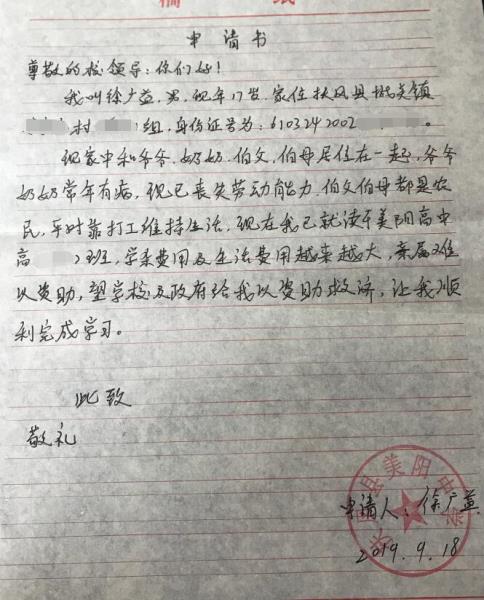 稿 纸
申请书
尊敬的校领导：你们好！
我叫徐广益，男，现年17岁，家住扶风县 镇
村 组，身份证号为：6103242002
现家中和爷爷、奶奶、伯父、伯母居住在一起，爷爷
奶奶常年有病，现已丧失劳动能力，伯父伯母都是农
民，平时靠打工维持生活，现在我已就读于美阳高中
高 班，学杂费用及生活费用越来越大，亲属难
以资助，望学校及政府给我以资助救济，让我顺
利完成学习。
此致
敬礼
县美阳中学
申请人：徐广益
2019.9.18